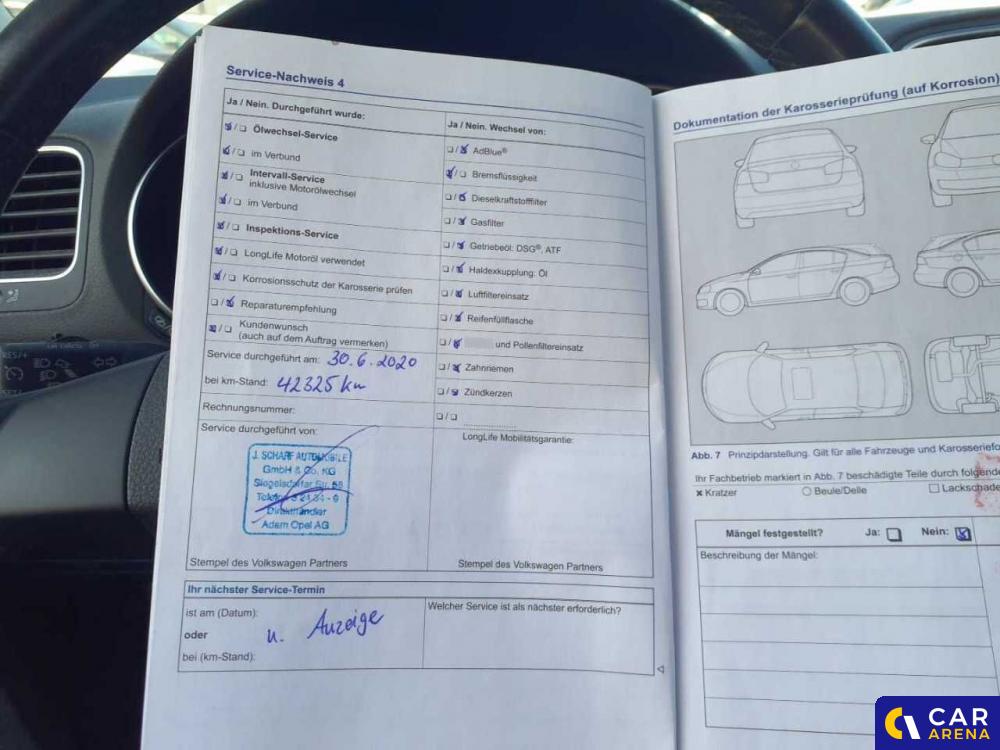 Service-Nachweis 4
Ja / Nein. Durchgeführt wurde:
Ölwechsel-Service
im Verbund
Intervall-Service
inklusive Motorölwechsel
im Verbund
Inspektions-Service
LongLife Motoröl verwendet
Korrosionsschutz der Karosserie prüfen
Reparaturempfehlung
Kundenwunsch
(auch auf dem Auftrag vermerken)
Service durchgeführt am: 30.6.2020
bei km-Stand: 42325 km
Rechnungsnummer:
Service durchgeführt von:
J. SCHARF AUTOMOBILE
GmbH & Co. KG
Direkthändler
Adam Opel AG
Stempel des Volkswagen Partners
Ja / Nein. Wechsel von:
AdBlue®
Bremsflüssigkeit
Dieselkraftstofffilter
Gasfilter
Getriebeöl: DSG®, ATF
Haldexkupplung: Öl
Luftfiltereinsatz
Reifenfüllflasche
und Pollenfiltereinsatz
Zahnriemen
Zündkerzen
LongLife Mobilitätsgarantie:
Stempel des Volkswagen Partners
Ihr nächster Service-Termin
ist am (Datum):
oder
bei (km-Stand):
n. Anzeige
Welcher Service ist als nächster erforderlich?
Dokumentation der Karosserieprüfung (auf Korrosion)
Abb. 7 Prinzipdarstellung. Gilt für alle Fahrzeuge und Karosseriefo
Ihr Fachbetrieb markiert in Abb. 7 beschädigte Teile durch folgende
Kratzer
Beule/Delle
Lackschade
Mängel festgestellt? Ja: Nein:
Beschreibung der Mängel:
CAR
ARENA